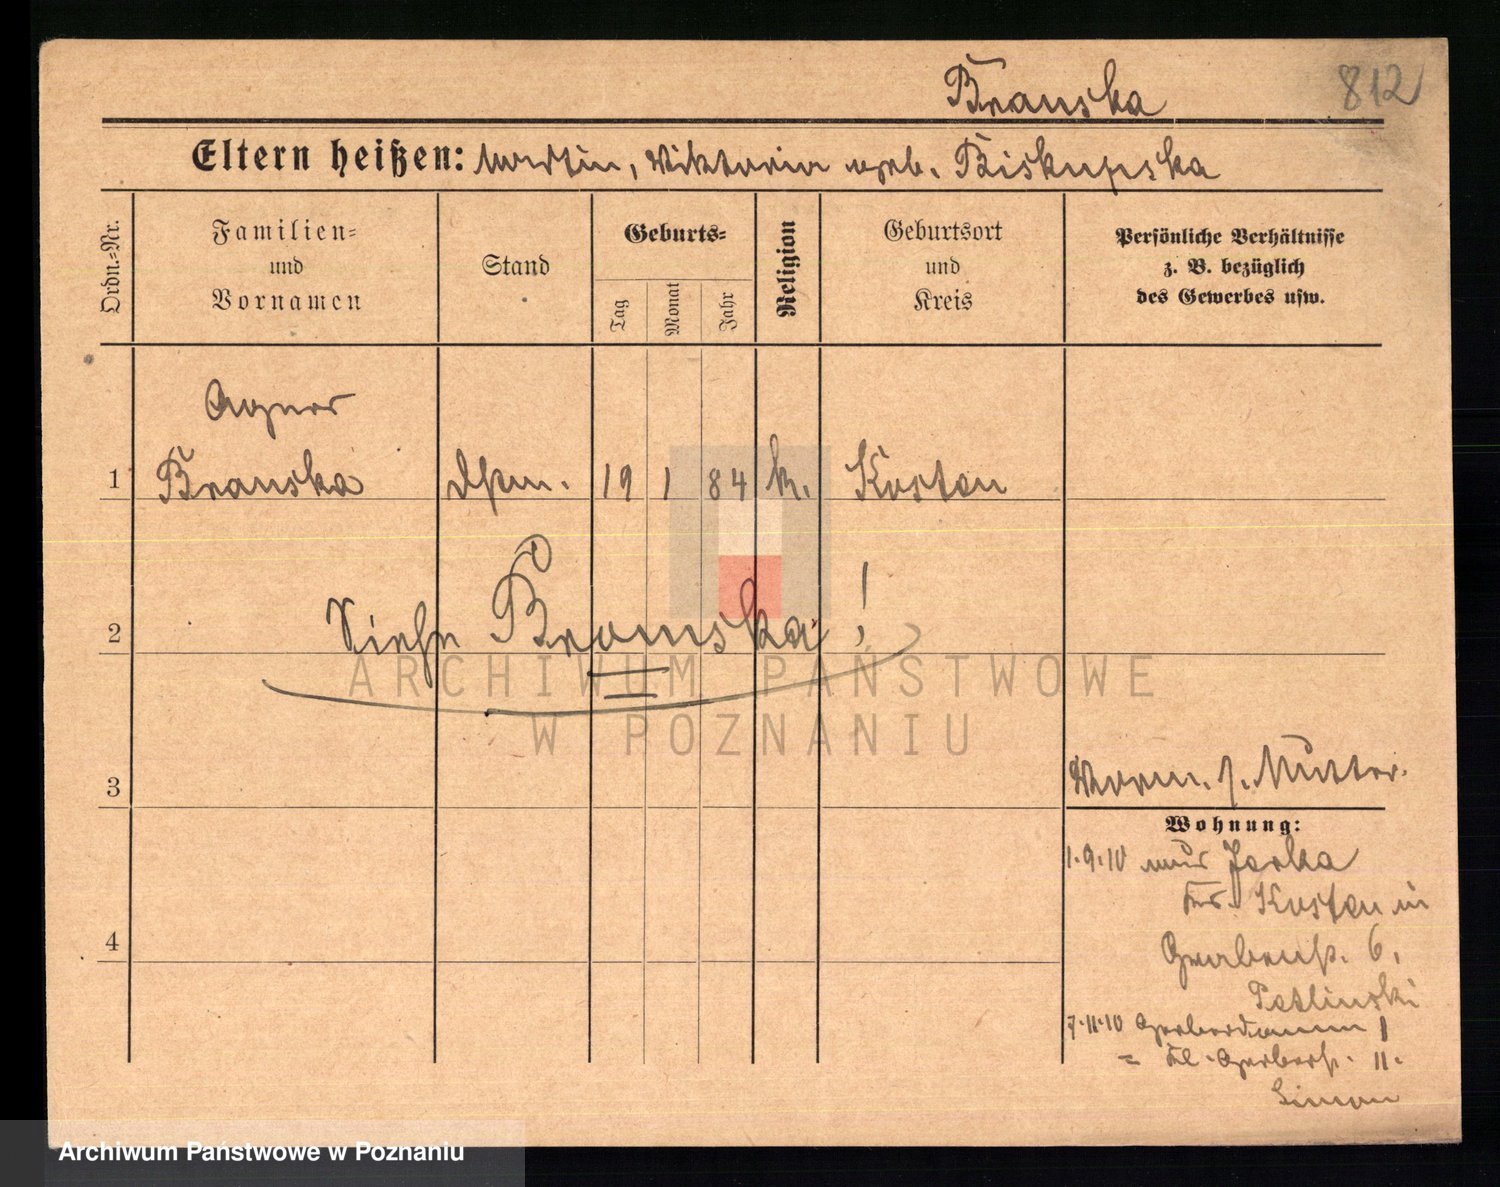 Branska 812
Eltern heißen: Martin, Viktoria geb. Biskupska
Ordn.-Nr.
Familien-
und
Vornamen
Stand
Geburts-
Tag
Monat
Jahr
Religion
Geburtsort
und
Kreis
Persönliche Verhältnisse
z. B. bezüglich
des Gewerbes usw.
Agnes
1 Branska 19 1 84 k. Kosten
2 Siehe Bromska!
3
Vorm. s. Mutter.
Wohnung:
1.9.10 aus Jerka
Krs. Kosten in
Grabenstr. 6,
Petlinski
7.11.10 Gerberdamm 1
= Kl. Gerberstr. 11.
Simon
4
ARCHIWUM PAŃSTWOWE
W POZNANIU
Archiwum Państwowe w Poznaniu